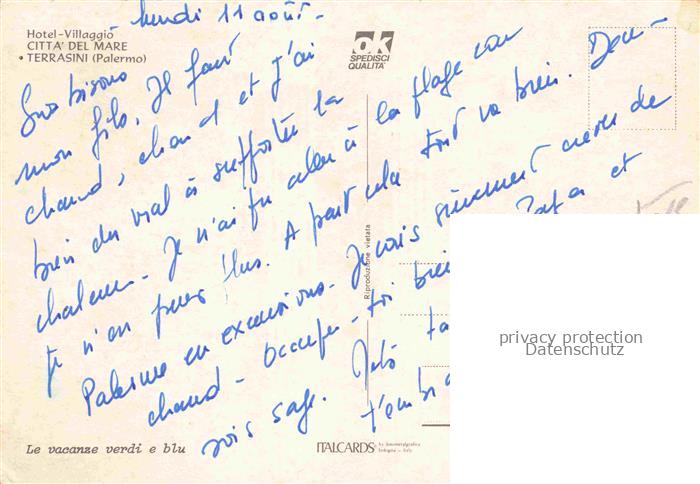 Hotel-Villaggio
CITTA' DEL MARE
• TERRASINI (Palermo)
OK
SPEDISCI
QUALITA'
lundi 11 août-
Gros bisous
mon filo. Il fait
chaud, chaud et j'ai
bien du mal à supporter la
chaleur. Je n'ai pu aller à la plage car
je n'en peux plus. A part cela tout va bien. Demain
Palerme en excursion. Je vais sûrement crever de
chaud - Occupe-toi bien Papa et
sois sage.
t'embra
Riproduzione vietata
privacy protection
Datenschutz
Le vacanze verdi e blu
ITALCARDS
bologna - italy